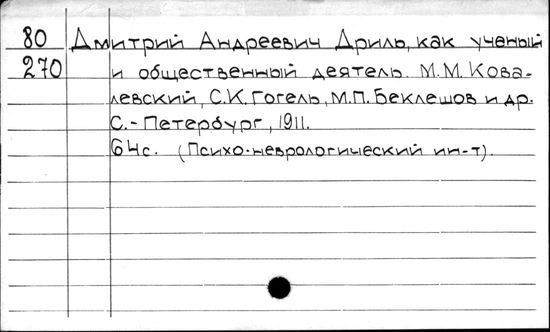 80 Дмитрий Андреевич Дриль, как ученый
270 и общественный деятель. М.М. Кова-
левский, С.К. Гогель, М.П. Беклешов и др.
С.-Петербург, 1911.
64с. (Психо-неврологический ин-т).